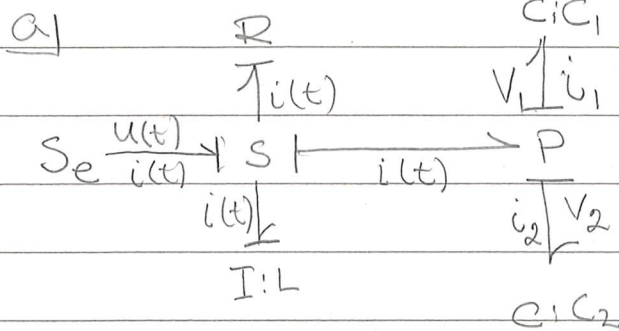 a) R C:C₁
i(t) V₁ i₁
Se u(t) i(t) S i(t) P
i(t) i₂ V₂
I:L
C:C₂